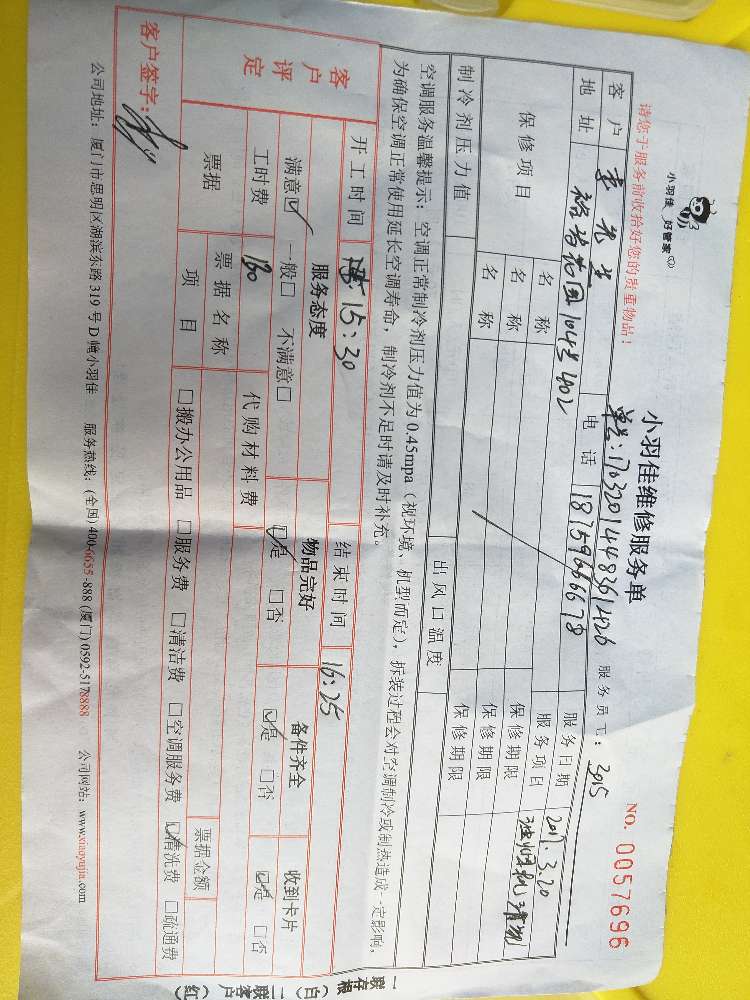 小羽佳 好管家
小羽佳维修服务单
NO. 0057696
请您于服务前收拾好您的贵重物品！
单号：170320144836142б 服务员工：3015
客户 李先生 电话 18759666678 服务日期 2017.3.20
地址 裕发花园104号402 服务项目 清洗
保修项目 名称 保修期限
名称 保修期限
名称 保修期限
制冷剂压力值 出风口温度
空调服务温馨提示：空调正常制冷剂压力值为0.45mpa（视环境、机型而定），拆装过程会对空调制冷或制热造成一定影响，
为确保空调正常使用延长空调寿命，制冷剂不足时请及时补充。
客户评定
开工时间 15:30 结束时间 16:25
服务态度 物品完好 备件齐全 收到卡片
满意☑ 一般□ 不满意□ ☑是 □否 ☑是 □否 ☑是 □否
工时费 130 代购材料费
票据 票据名称 票据金额
项目 □搬办公用品 □服务费 □清洁费 □空调服务费 ☑清洗费 □疏通费
客户签字：
公司地址：厦门市思明区湖滨东路319号D幢小羽佳 服务热线：(全国)400-6655-888 (厦门)0592-5178888 公司网站：www.xiaoyujia.com
一联存根（白）二联客户（红）